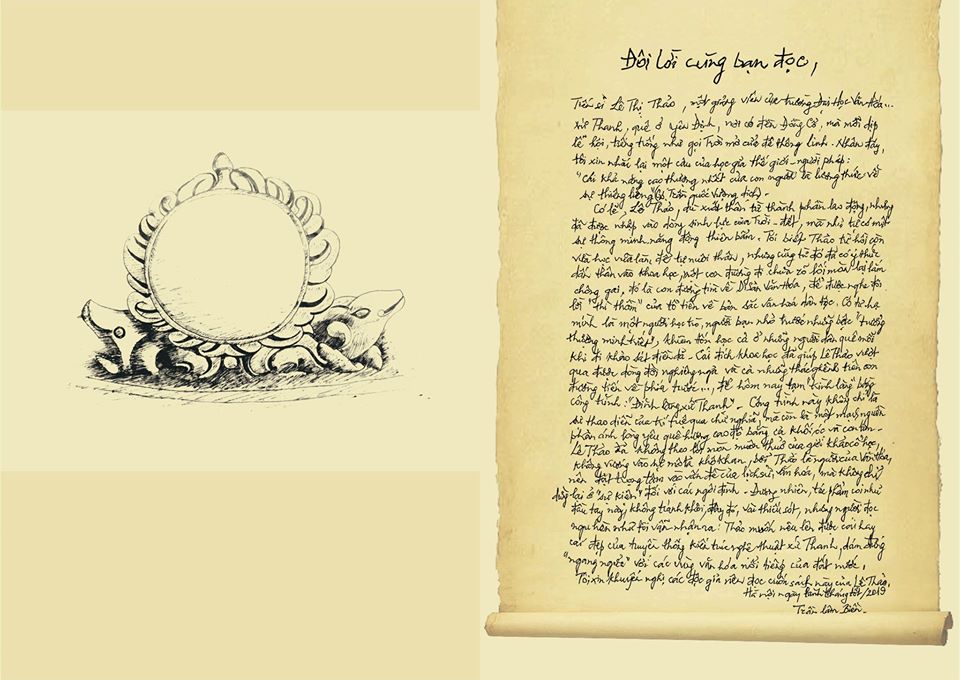 Đôi lời cùng bạn đọc,
Tiến sĩ Lê Thị Thảo, một giảng viên của trường Đại Học Văn Hóa...
xứ Thanh, quê ở Yên Định, nơi có đền Đồng Cổ, mà mỗi dịp
lễ hội, tiếng trống như gọi Trời mở cửa để thông linh. Nhân đây,
tôi xin nhắc lại một câu của học giả thế giới - người pháp:
"Chỉ khả năng cao thượng nhất của con người là lương thức về
sự thiêng liêng" (Cố Trần Quốc Vượng dịch).
Có lẽ, Lê Thảo, dù xuất thân từ thành phần lao động, nhưng
đã được nhập vào dòng sinh lực của Trời - đất, mà như tự có một
sự thông minh năng động thiên bẩm. Tôi biết Thảo từ hồi còn
vừa học vừa làm, để tự nuôi thân, nhưng cũng từ đó đã có ý thức
dấn thân vào khoa học, một con đường đi chưa rõ lối mòn lại lắm
chông gai, đó là con đường tìm về Di sản Văn Hóa, để được nghe đôi
lời "thì thầm" của tổ tiên về bản sắc văn hoá dân tộc. Cô tự hạ
mình là một người học trò, người bạn nhỏ trước những bậc "trưởng
thượng minh triết", khiêm tốn học cả ở những người dân quê mỗi
khi đi khảo sát điền dã. Cái đích khoa học đã giúp Lê Thảo vượt
qua được dòng đời nghiêng ngả và cả những thác ghềnh trên con
đường tiến về phía trước..., để hôm nay tạm "kinh lòng" bằng
công trình: "Đình làng xứ Thanh". Công trình này không chỉ là
sự thao diễn của trí tuệ qua chữ nghĩa, mà còn là một mạch nguồn
phản ánh lòng yêu quê hương cao độ bằng cả khối óc và con tim.
Lê Thảo đã không theo lối mòn muôn thuở của giới khảo cổ học,
không vương vào sự mô tả khô khan, bởi Thảo là người của văn hóa,
nên đặt trọng tâm vào vấn đề của lịch sử, văn hóa, mà không chỉ
dừng lại ở "sự kiện" đối với các ngôi đình. Đương nhiên, tác phẩm coi như
đầu tay này, không tránh khỏi, đây đó, vài thiếu sót, nhưng người đọc
ngu hèn như tôi vẫn nhận ra: Thảo muốn nêu lên được cái hay
cái đẹp của truyền thống kiến trúc nghệ thuật xứ Thanh, dám đứng
"ngang ngửa" với các vùng văn hóa nổi tiếng của đất nước.
Tôi xin khuyến nghị các độc giả nên đọc cuốn sách này của Lê Thảo.
Hà nội ngày lành tháng tốt/2019
Trần Lâm Biền